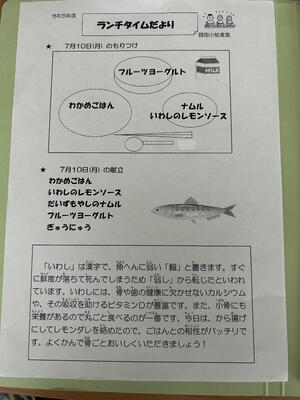 令和5年度
ランチタイムだより
給食室
★ 7月10日(月) のもりつけ
フルーツヨーグルト
MILK
わかめごはん
ナムル
いわしのレモンソース
★ 7月10日(月) の献立
わかめごはん
いわしのレモンソース
だいずもやしのナムル
フルーツヨーグルト
ぎゅうにゅう
「いわし」は漢字で、魚へんに弱い「鰯」と書きます。すぐ
に鮮度が落ちて死んでしまうため「弱し」から転じたといわれ
ています。いわしには、骨や歯の健康に欠かせないカルシウム
や、その吸収を助けるビタミンDが豊富です。また、小骨にも
栄養があるので丸ごと食べるのが一番です。今日は、から揚げ
にしてレモンダレを絡めたので、ごはんとの相性がバッチリで
す。よくかんで骨ごとおいしくいただきましょう！